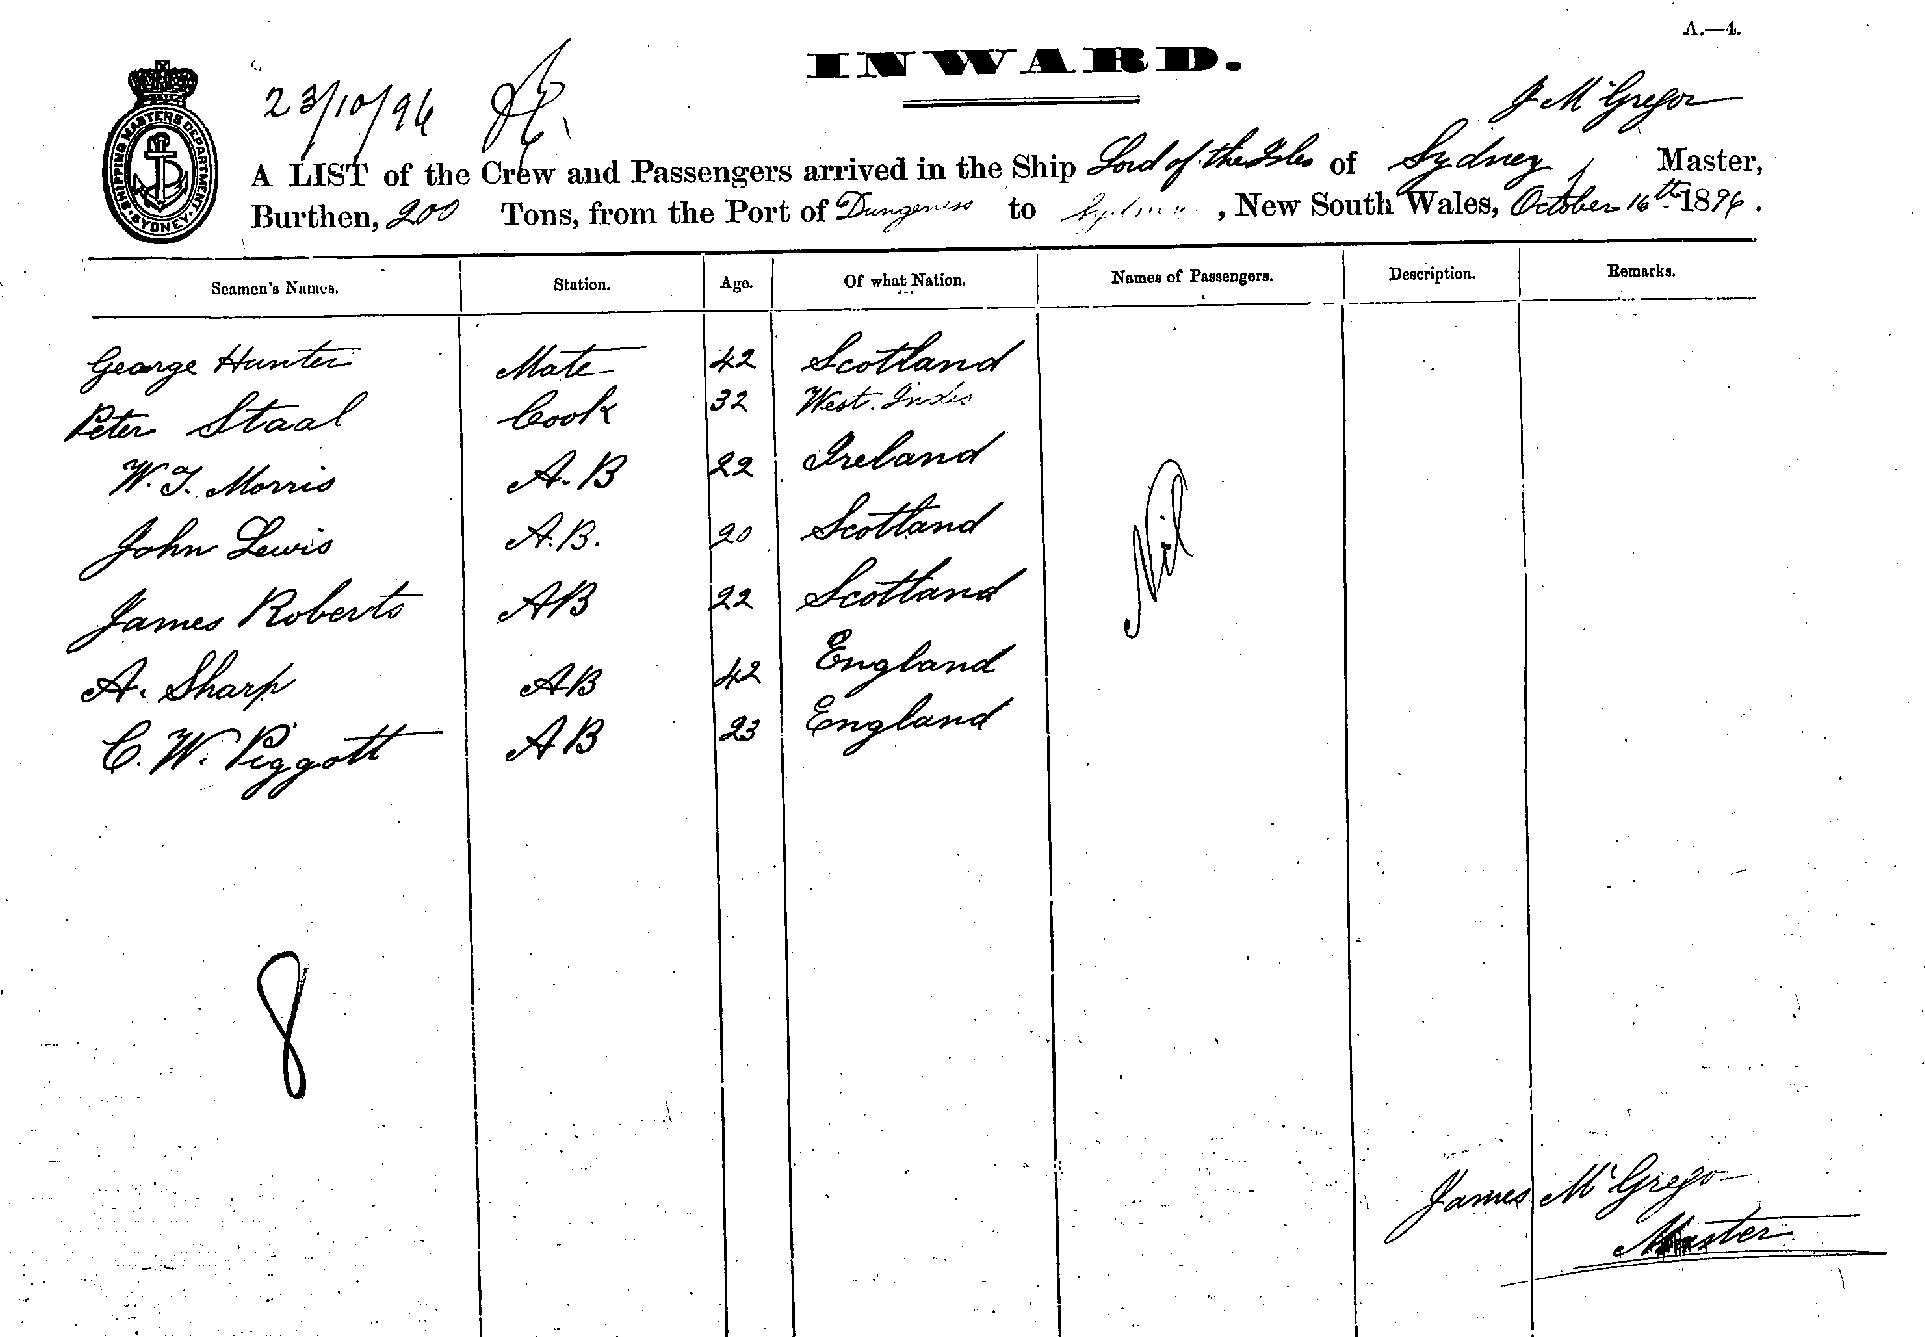 A.—4.
INWARD.
23/10/96
J McGregor
SHIPPING MASTERS DEPARTMENT SYDNEY
A LIST of the Crew and Passengers arrived in the Ship Lord of the Isles of Sydney, Master,
Burthen, 200 Tons, from the Port of Dungeness to Sydney, New South Wales, October 16th 1896.
Seamen's Names. Station. Age. Of what Nation. Names of Passengers. Description. Remarks.
George Hunter Mate 42 Scotland
Peter Staal Cook 32 West Indis
W. J. Morris A.B 22 Ireland
John Lewis A.B. 20 Scotland
James Roberts AB 22 Scotland
A. Sharp AB 42 England
C. W. Piggott AB 23 England
Nil
8
James McGregor
Master